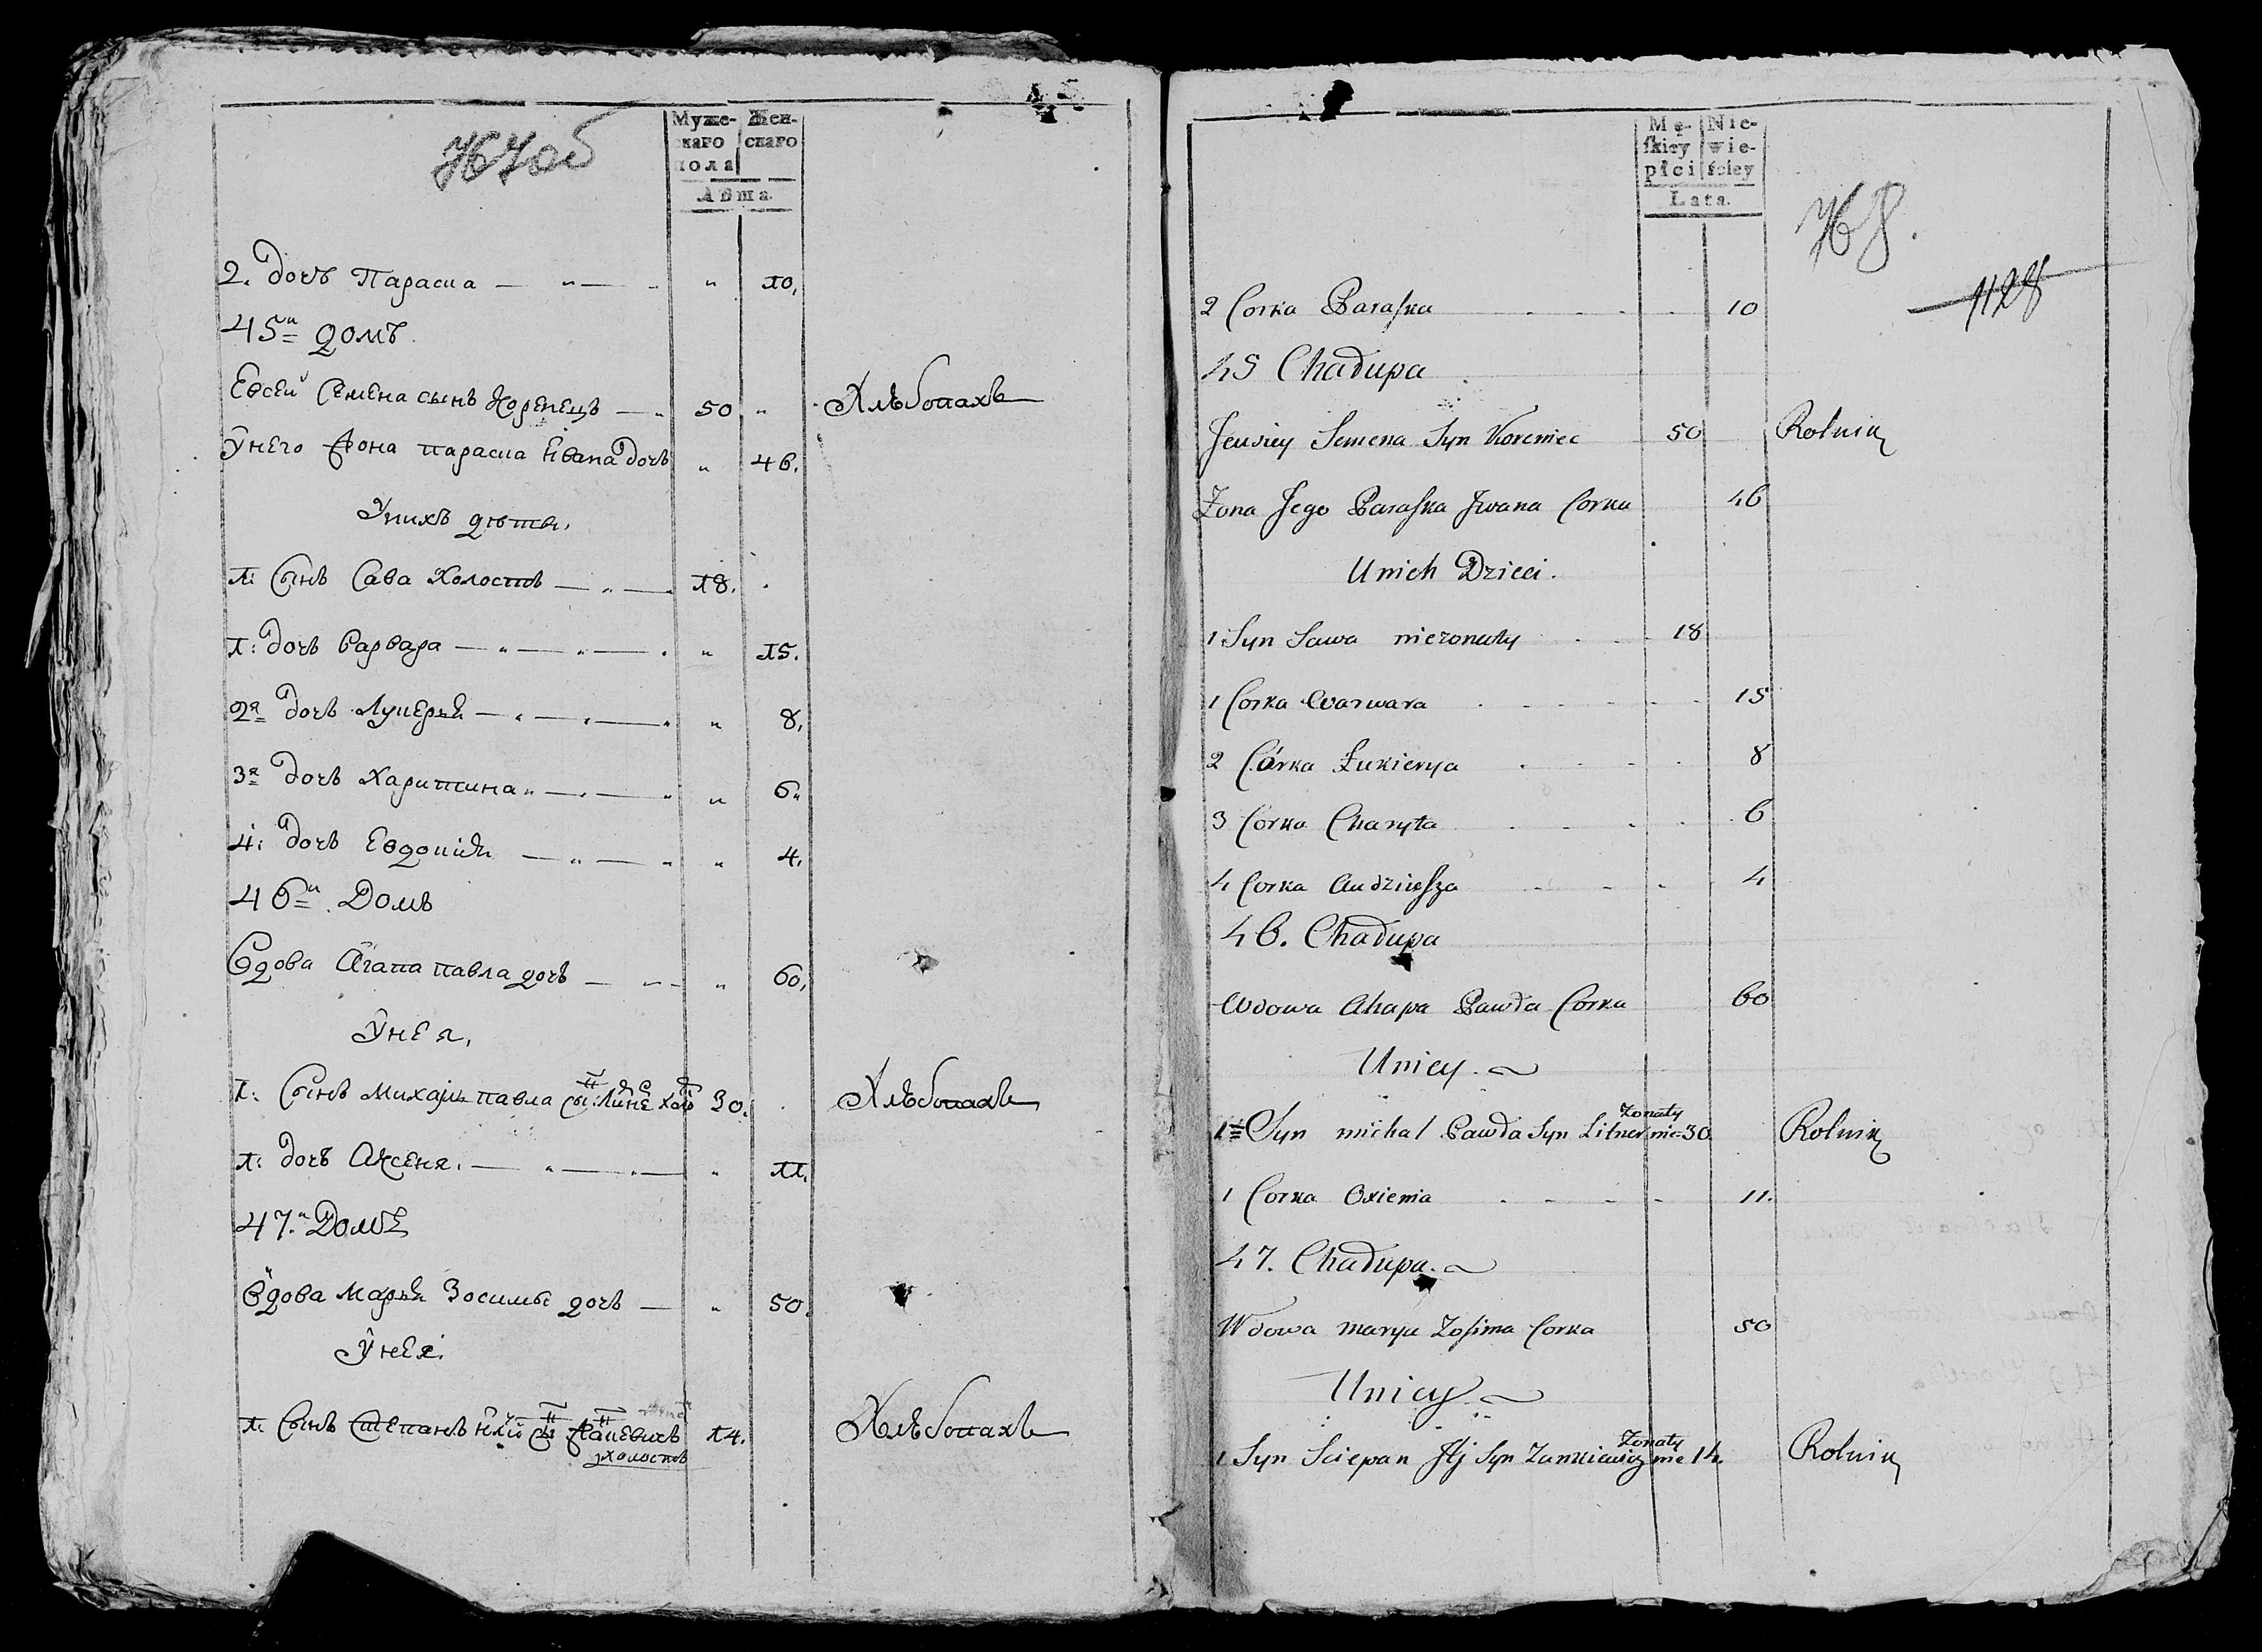 Муже-
скаго
пола
Жен-
скаго
Лѣта.
2. дочь Параска — „ — „ 10,
45й домъ.
Евсей Семена сынъ Коренецъ — 50 „ Хлѣбопахъ
Унего Жона параска Ивана дочь „ 46.
Унихъ дѣти.
1: Сынъ Сава Холостъ — „ — 18.
1: дочь Варвара — „ — „ — „ 15.
2я дочь Лукерья — „ — „ — „ 8,
3я дочь Харитина „ — „ — „ 6„
4: дочь Евдокія — „ — „ „ 4,
46й. Домъ
Вдова Агапа павла дочь — „ — „ 60,
Унея,
1: Сынъ михайло павла сы: 30. Хлѣбопахъ
1: дочь Аксеня. — „ — „ — „ 11.
47й Домъ
Вдова марья Зосимы дочь — „ 50.
Унея.
1. Сынъ Степанъ 14. Хлѣбопахъ
холостъ
Mę-
skiey
płci
Nie-
wie-
ściey
Lata.
1128
2 Corka Paraska 10
45 Chadupa
Jewsiey Semena Syn Koreniec 50 Rolnik
Zona Jego Paraska Jwana Corka 46
Unich Dzieci.
1 Syn Sawa niezonaty 18
1 Corka Warwara 15
2 Córka Łukierya 8
3 Corka Charyta 6
4 Corka Audziesza 4
46. Chadupa
Wdowa Ahapa Pawła Corka 60
Uniey.
Zonaty
1 Syn michał Pawła Syn nie 30 Rolnik
1 Corka Oxienia 11.
47. Chadupa.
Wdowa marya Zosima Corka 50
Uniey
Zonaty
1 Syn Sciepan Jlj Syn Zankiewicz nie 14. Rolnik